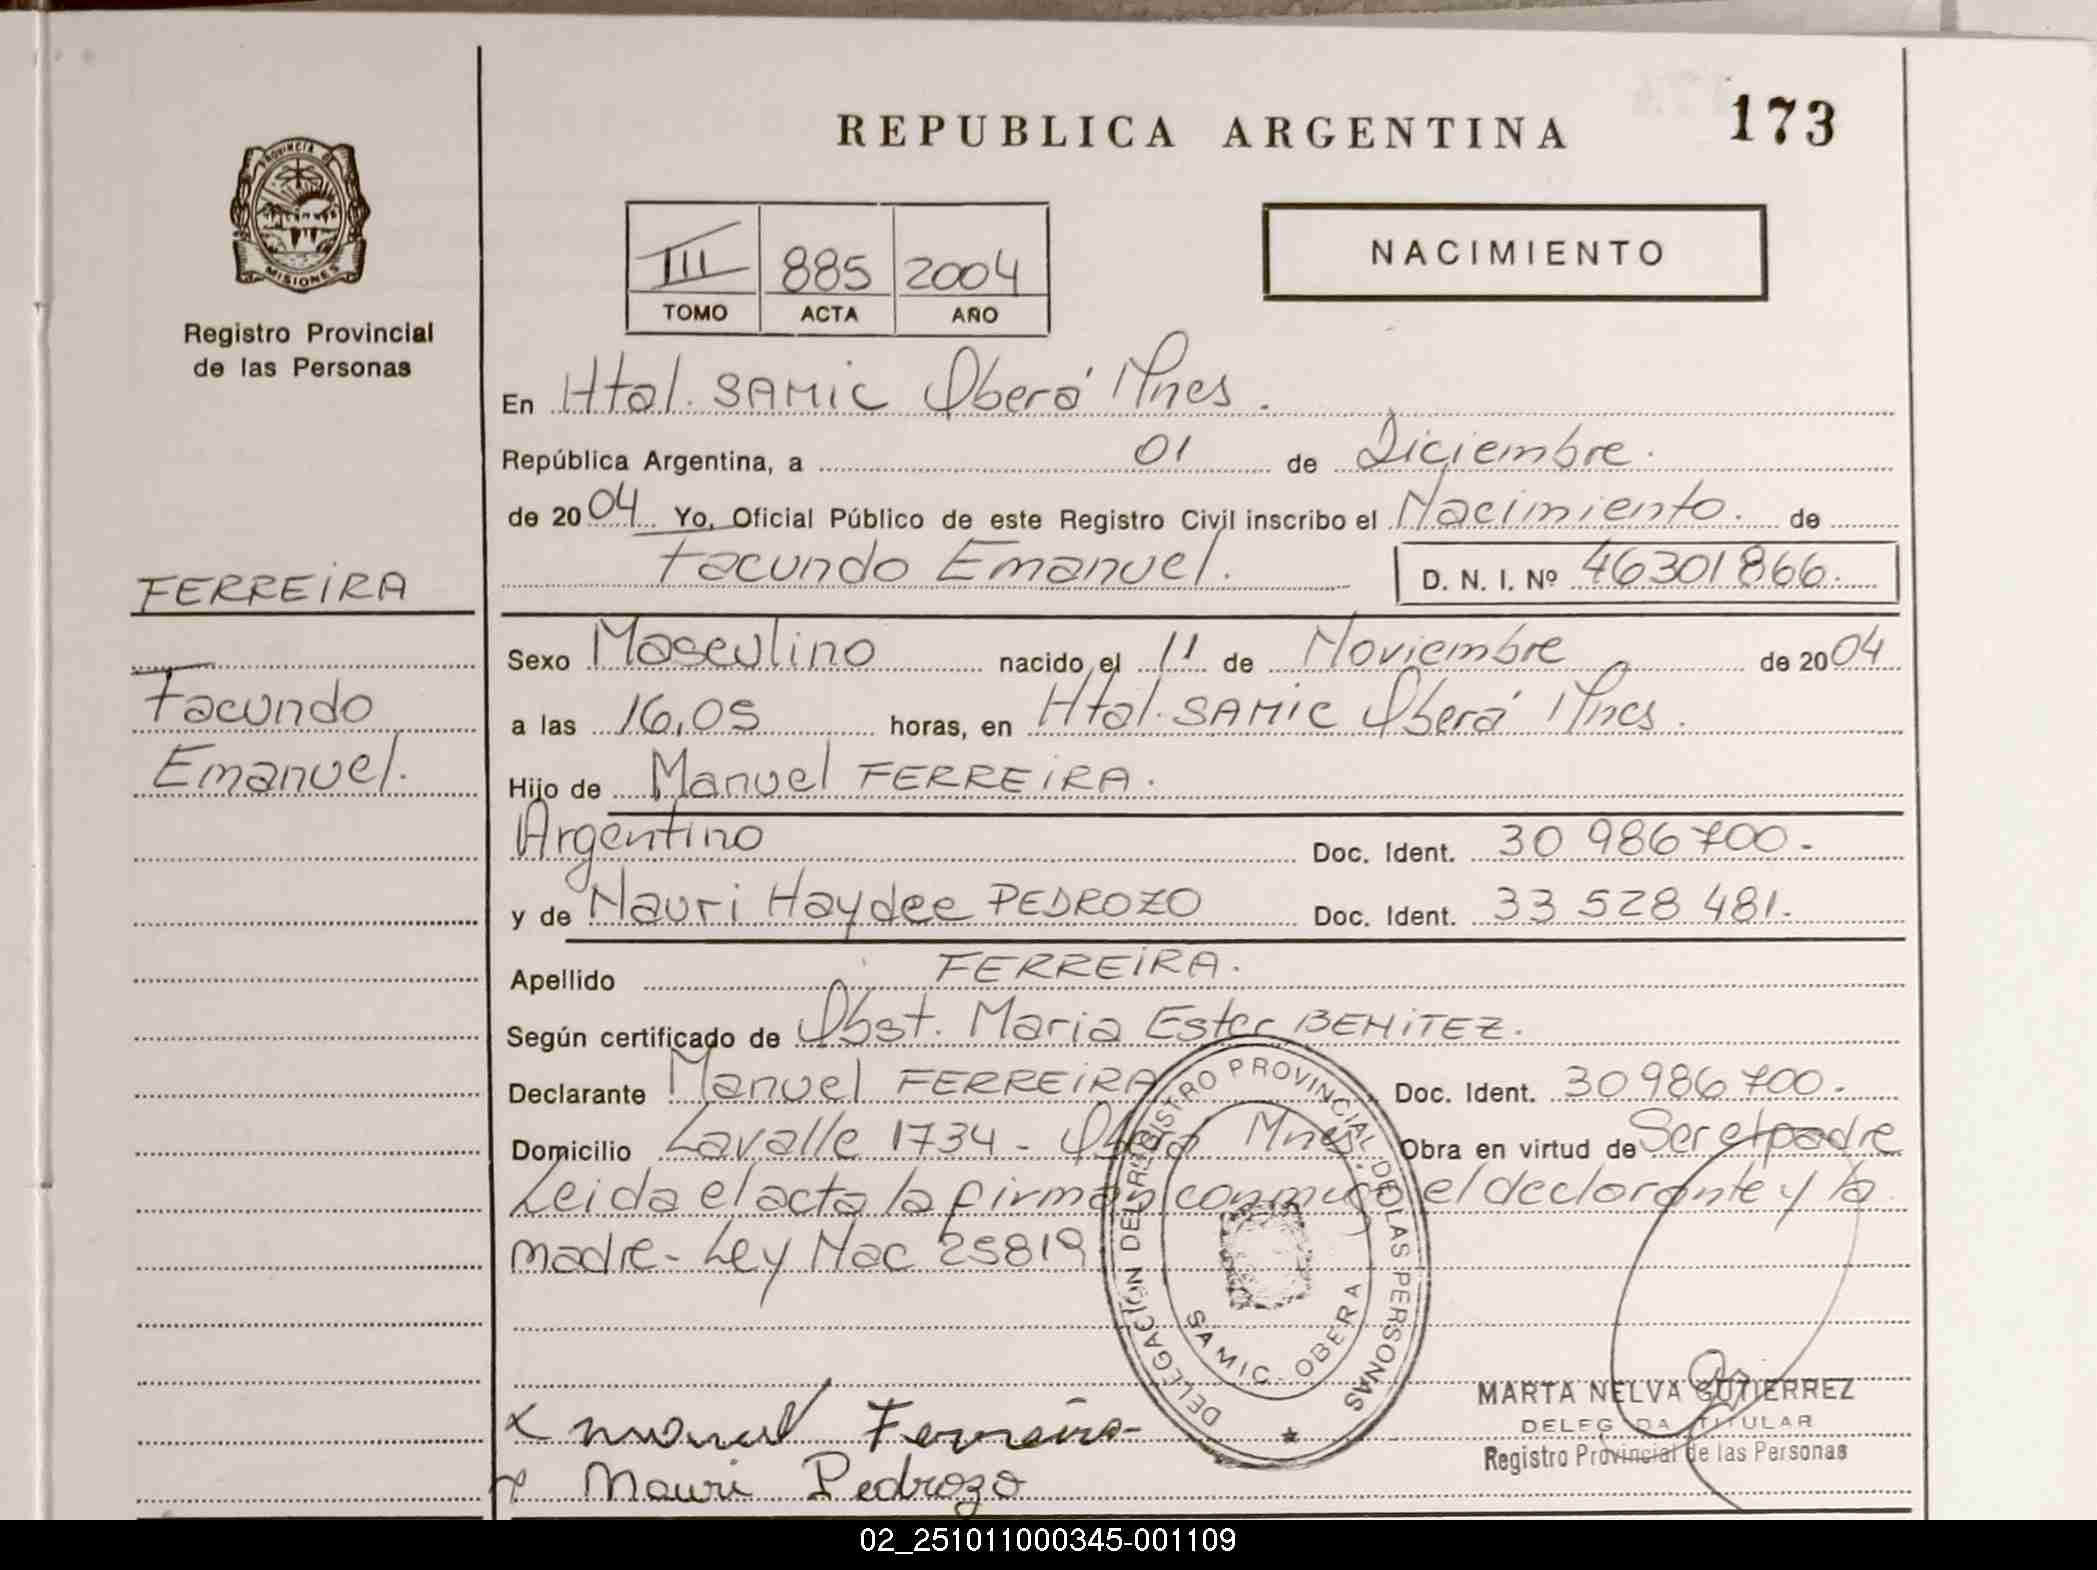 REPUBLICA ARGENTINA
173
PROVINCIA DE
MISIONES
Registro Provincial
de las Personas
III 885 2004
TOMO ACTA AÑO
NACIMIENTO
En Htal. SAMIC Oberá Mnes.
República Argentina, a 01 de Diciembre.
de 2004 Yo, Oficial Público de este Registro Civil inscribo el Nacimiento. de
Facundo Emanuel. D. N. I. Nº 46301866.
FERREIRA
Facundo
Emanuel.
Sexo Masculino nacido el 11 de Noviembre de 2004
a las 16,05 horas, en Htal. SAMIC Oberá Mnes.
Hijo de Manuel FERREIRA.
Argentino Doc. Ident. 30 986 700.-
y de Mauri Haydee PEDROZO Doc. Ident. 33 528 481.-
Apellido FERREIRA.
Según certificado de Obst. Maria Ester BENITEZ.
Declarante Manuel FERREIRA Doc. Ident. 30986700.-
Domicilio Lavalle 1734 - Oberá Mnes. Obra en virtud de Ser el padre
Leida el acta la firman conmigo el declarante y la
madre - Ley Nac 25819
DELEGACION DEL REGISTRO PROVINCIAL DE LAS PERSONAS
SAMIC - OBERA
x Manuel Ferreira
x Mauri Pedrozo
MARTA NELVA GUTIERREZ
DELEGADA TITULAR
Registro Provincial de las Personas
02_251011000345-001109